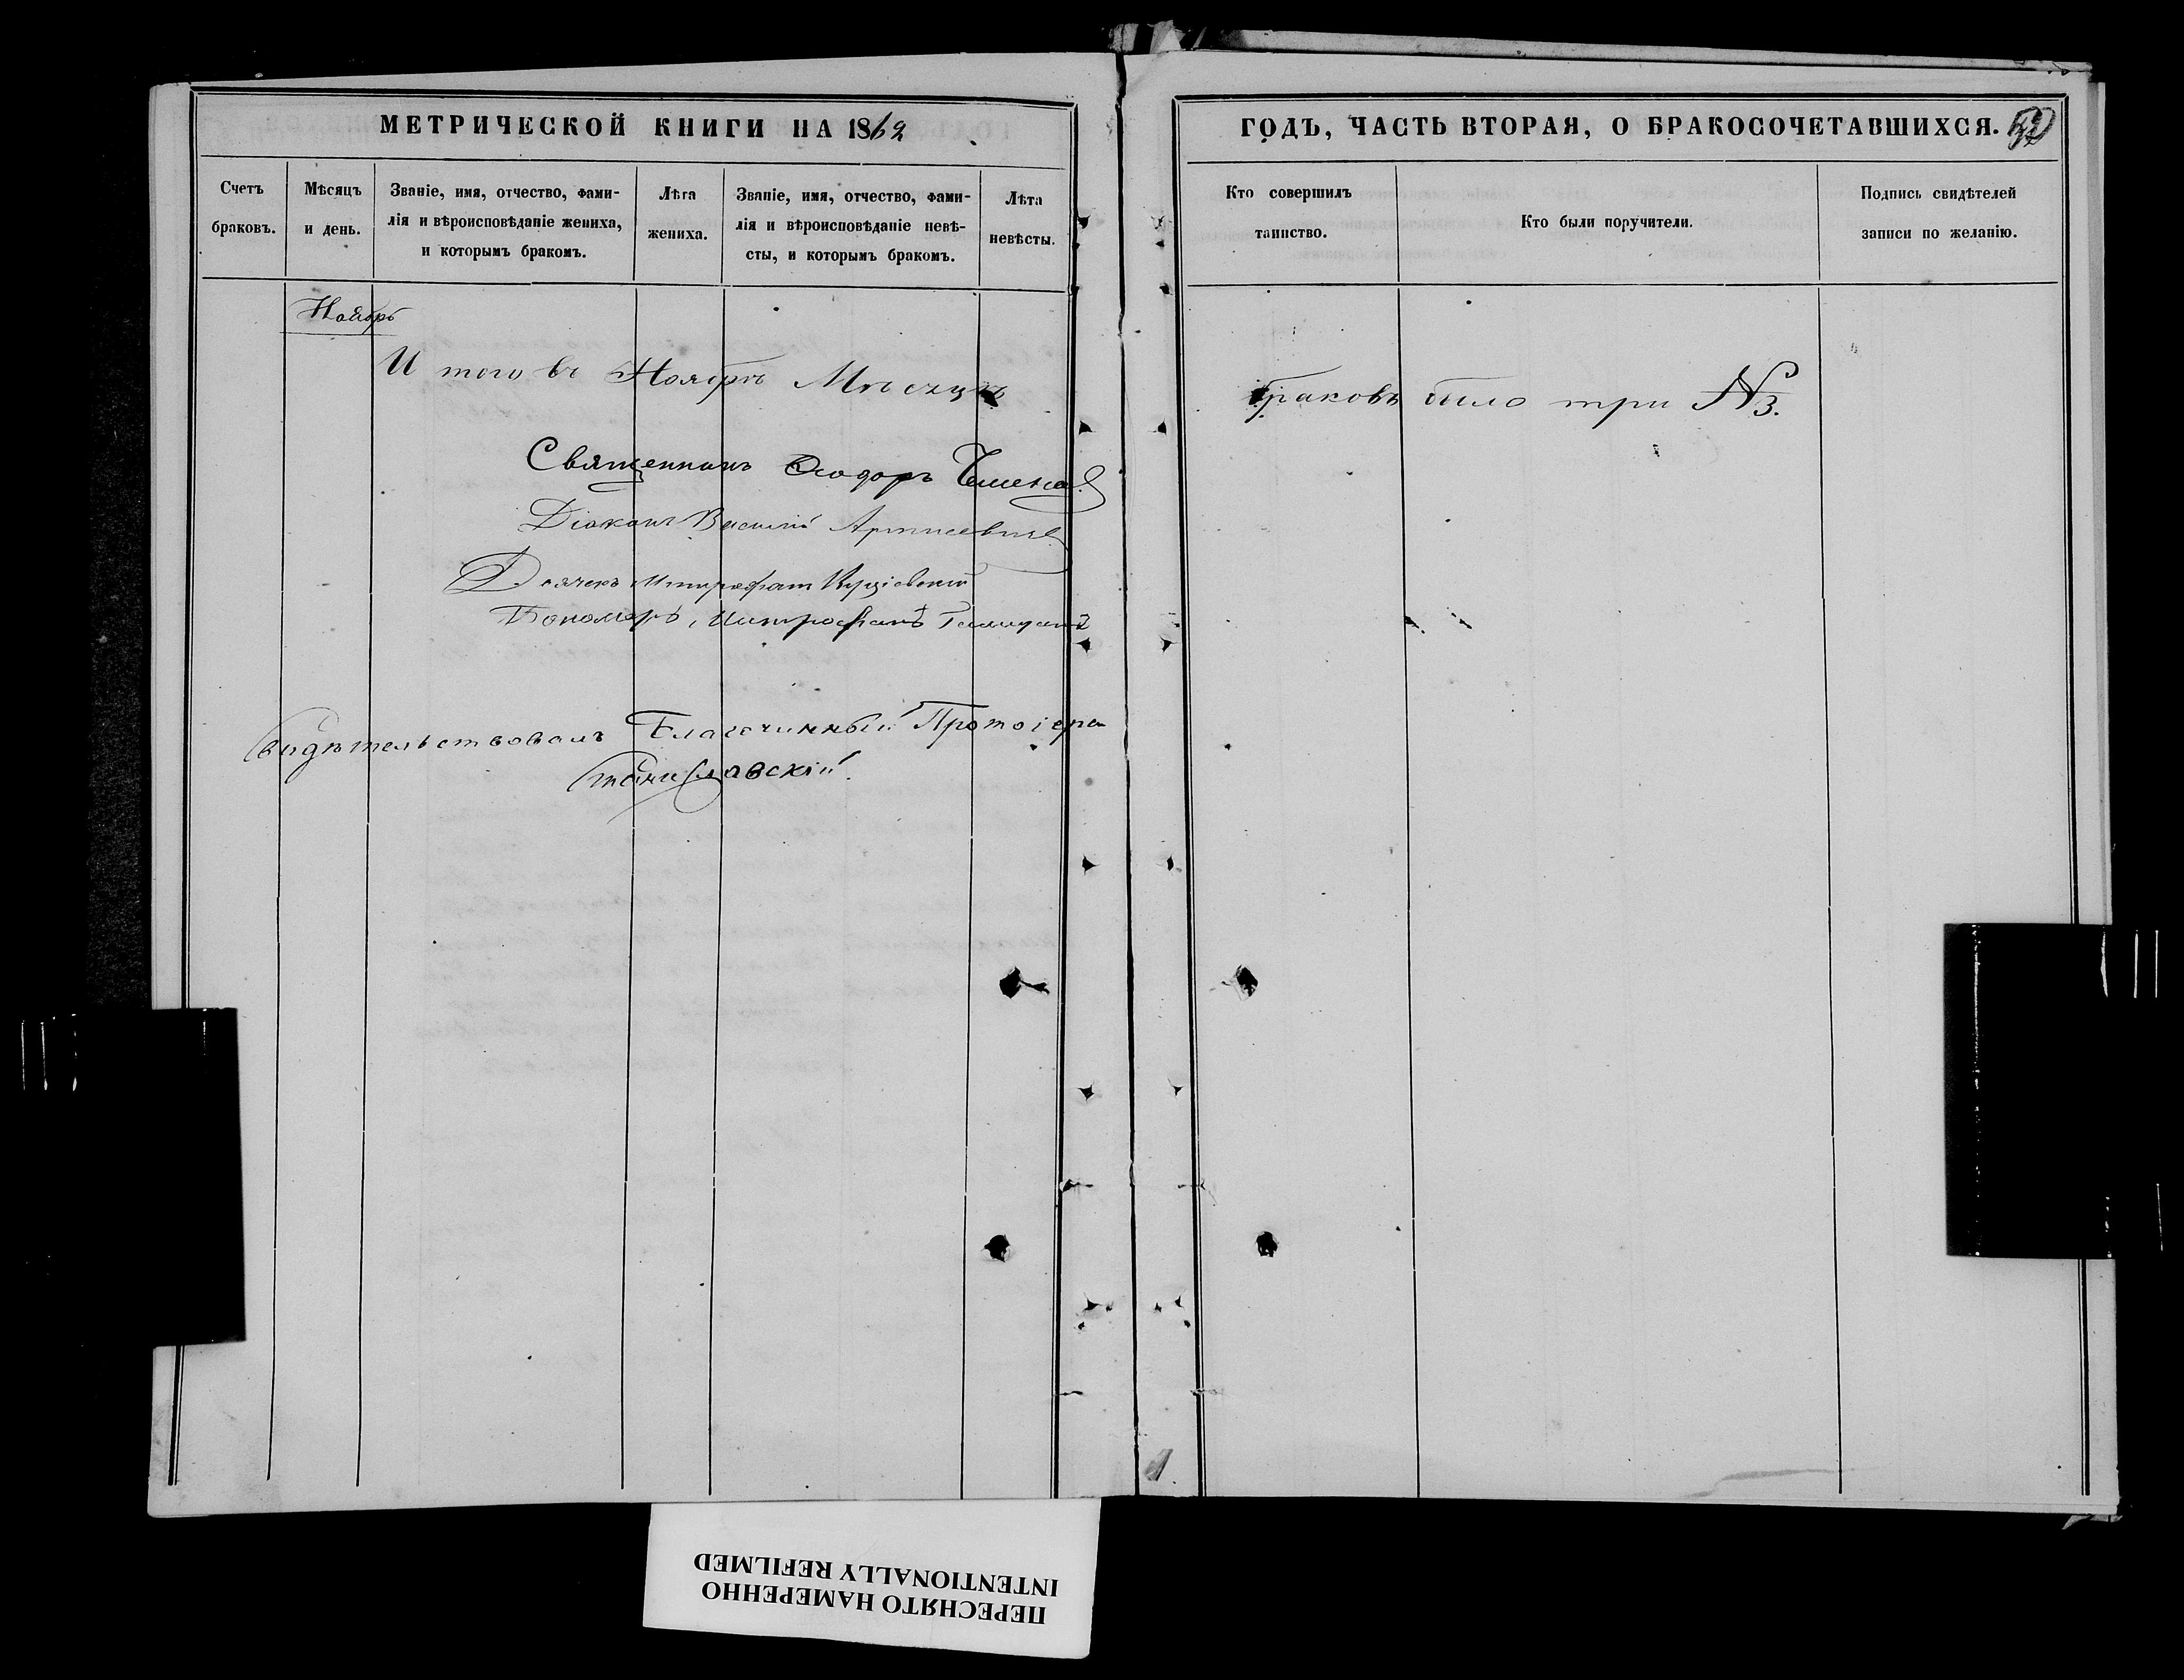 МЕТРИЧЕСКОЙ КНИГИ НА 1869
Счетъ браковъ.
Мѣсяцъ и день.
Званіе, имя, отчество, фами-
лія и вѣроисповѣданіе жениха,
и которымъ бракомъ.
Лѣта жениха.
Званіе, имя, отчество, фами-
лія и вѣроисповѣданіе невѣ-
сты, и которымъ бракомъ.
Лѣта невѣсты.
Ноябрь
И того въ Ноябрѣ Мѣсяцѣ
Священникъ Ѳеодоръ
Діаконъ Василій
Дьячекъ Митрофанъ
Пономарь Митрофанъ
Свидѣтельствовалъ Благочинный Протоіерей
Станиславскій.
ГОДЪ, ЧАСТЬ ВТОРАЯ, О БРАКОСОЧЕТАВШИХСЯ.
Кто совершилъ таинство.
Кто были поручители.
Подпись свидѣтелей
записи по желанію.
браковъ было три №3.
ПЕРЕСНЯТО НАМЕРЕННО
INTENTIONALLY REFILMED